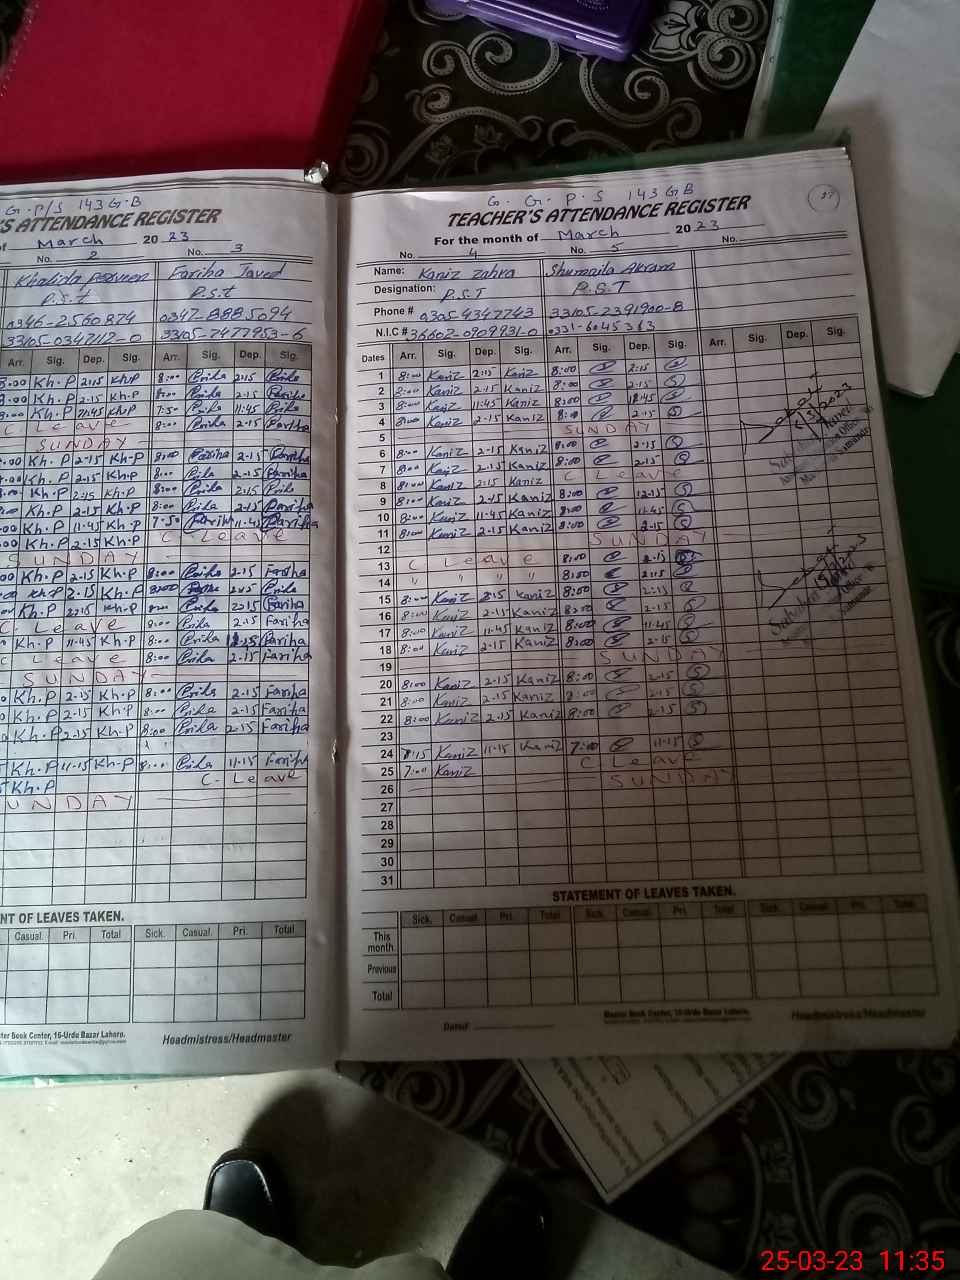 G.P/S 143 G.B
'S ATTENDANCE REGISTER
of March 2023
No. 2 No. 3
Khalida Parveen Fariha Javed
P.S.t P.S.t
0346-2560874 0347-8885094
33105-0347112-0 33105-7477953-6
Arr. Sig. Dep. Sig. Arr. Sig. Dep. Sig.
8:00 Kh.P 2:15 Kh.P 8:00 2:15
8:00 Kh.P 2.15 Kh.P 8:00 2.15 Fariha
8:00 Kh.P 11:45 Kh.P 7:50 11:45 Fariha
C Leave 8:00 2.15 Fariha
SUNDAY
Kh.P 2-15 Kh.P 8:00 Fariha 2-15 Fariha
Kh.P 2.15 Kh.P 8:00 2.15 Fariha
Kh.P 2:15 Kh.P 8:00 2:15
Kh.P 2.15 Kh.P 8:00 2.15 Fariha
Kh.P 11.45 Kh.P 7.50 Fariha 11.45 Fariha
Kh.P 2.15 Kh.P C-Leave
SUNDAY
Kh.P 2-15 Kh.P 8:00 2-15 Fariha
Kh.P 2.15 Kh.P 8:00
Kh.P Kh.P 2:15 Fariha
C Leave 8:00 2.15 Fariha
Kh.P 11.45 Kh.P 8:00 Fariha
C Leave 8:00 2.15 Fariha
SUNDAY
Kh.P 2.15 Kh.P 8:00 2.15 Fariha
Kh.P 2.15 Kh.P 8:00 2.15 Fariha
Kh.P 2.15 Kh.P 8:00 2.15 Fariha
Kh.P 11-15 Kh.P 8:00 11.15 Fariha
Kh.P C-Leave
SUNDAY
NT OF LEAVES TAKEN.
Casual. Pri. Total Sick. Casual. Pri. Total
ster Book Center, 16-Urdu Bazar Lahore.
Headmistress/Headmaster
G. G. P. S 143 GB
37
TEACHER'S ATTENDANCE REGISTER
For the month of March 2023
No. 4 No. 5 No.
Name: Kaniz Zahra Shumaila Akram
Designation: P.S.T P.S.T
Phone # 0305-4347743 33105-2391900-8
N.I.C # 36602-0909931-0 0331-6045363
Dates Arr. Sig. Dep. Sig. Arr. Sig. Dep. Sig. Arr. Sig. Dep. Sig.
1 8:00 Kaniz 2:15 Kaniz 8:00 2:15
2 8:00 Kaniz 2.15 Kaniz 8:00 2.15
3 8:00 Kaniz 11:45 Kaniz 8:00
4 8:00 Kaniz 2.15 Kaniz 8:00 2.15
5 SUNDAY
6 8:00 Kaniz 2-15 Kaniz 8:00 2.15
7 8:00 Kaniz 2.15 Kaniz 8:00 2.15
8 8:00 Kaniz 2:15 Kaniz C Leave
9 8:00 Kaniz 2.15 Kaniz 8:00 12:15
10 8:00 Kaniz 11.45 Kaniz 8:00 11.45
11 8:00 Kaniz 2.15 Kaniz 8:00 2.15
12 SUNDAY
13 C Leave 8:00 2.15
14 " " " " 8:00 2:15
15 8:00 Kaniz 2.15 Kaniz 8:00 2:15
16 8:00 Kaniz 2.15 Kaniz 8:00 2.15
17 8:00 Kaniz 11.45 Kaniz 8:00 11.45
18 8:00 Kaniz 2.15 Kaniz 8:00 2.15
19 SUNDAY
20 8:00 Kaniz 2.15 Kaniz 8:00 2.15
21 8:00 Kaniz 2.15 Kaniz 8:00 2.15
22 8:00 Kaniz 2.15 Kaniz 8:00 2.15
23
24 7:15 Kaniz 11-15 Kaniz 7:00 11.15
25 7:00 Kaniz C Leave
26 SUNDAY
27
28
29
30
31
STATEMENT OF LEAVES TAKEN.
Sick. Casual. Pri. Total Sick. Casual. Pri. Total Sick. Casual. Pri. Total.
This month
Previous
Total
Dated
Master Book Center, 16-Urdu Bazar Lahore.
Headmistress/Headmaster
25-03-23 11:35